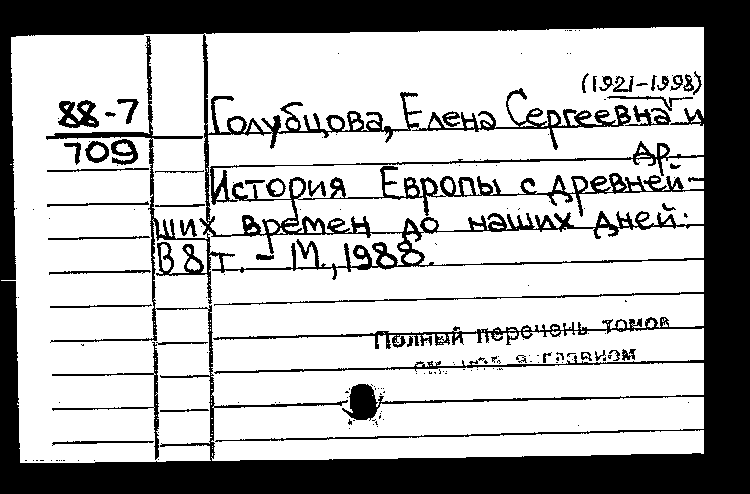 (1921-1998)
88-7 Голубцова, Елена Сергеевна и
709 др.
История Европы с древней-
ших времен до наших дней:
В 8 т. - М., 1988.
Полный перечень томов
главном